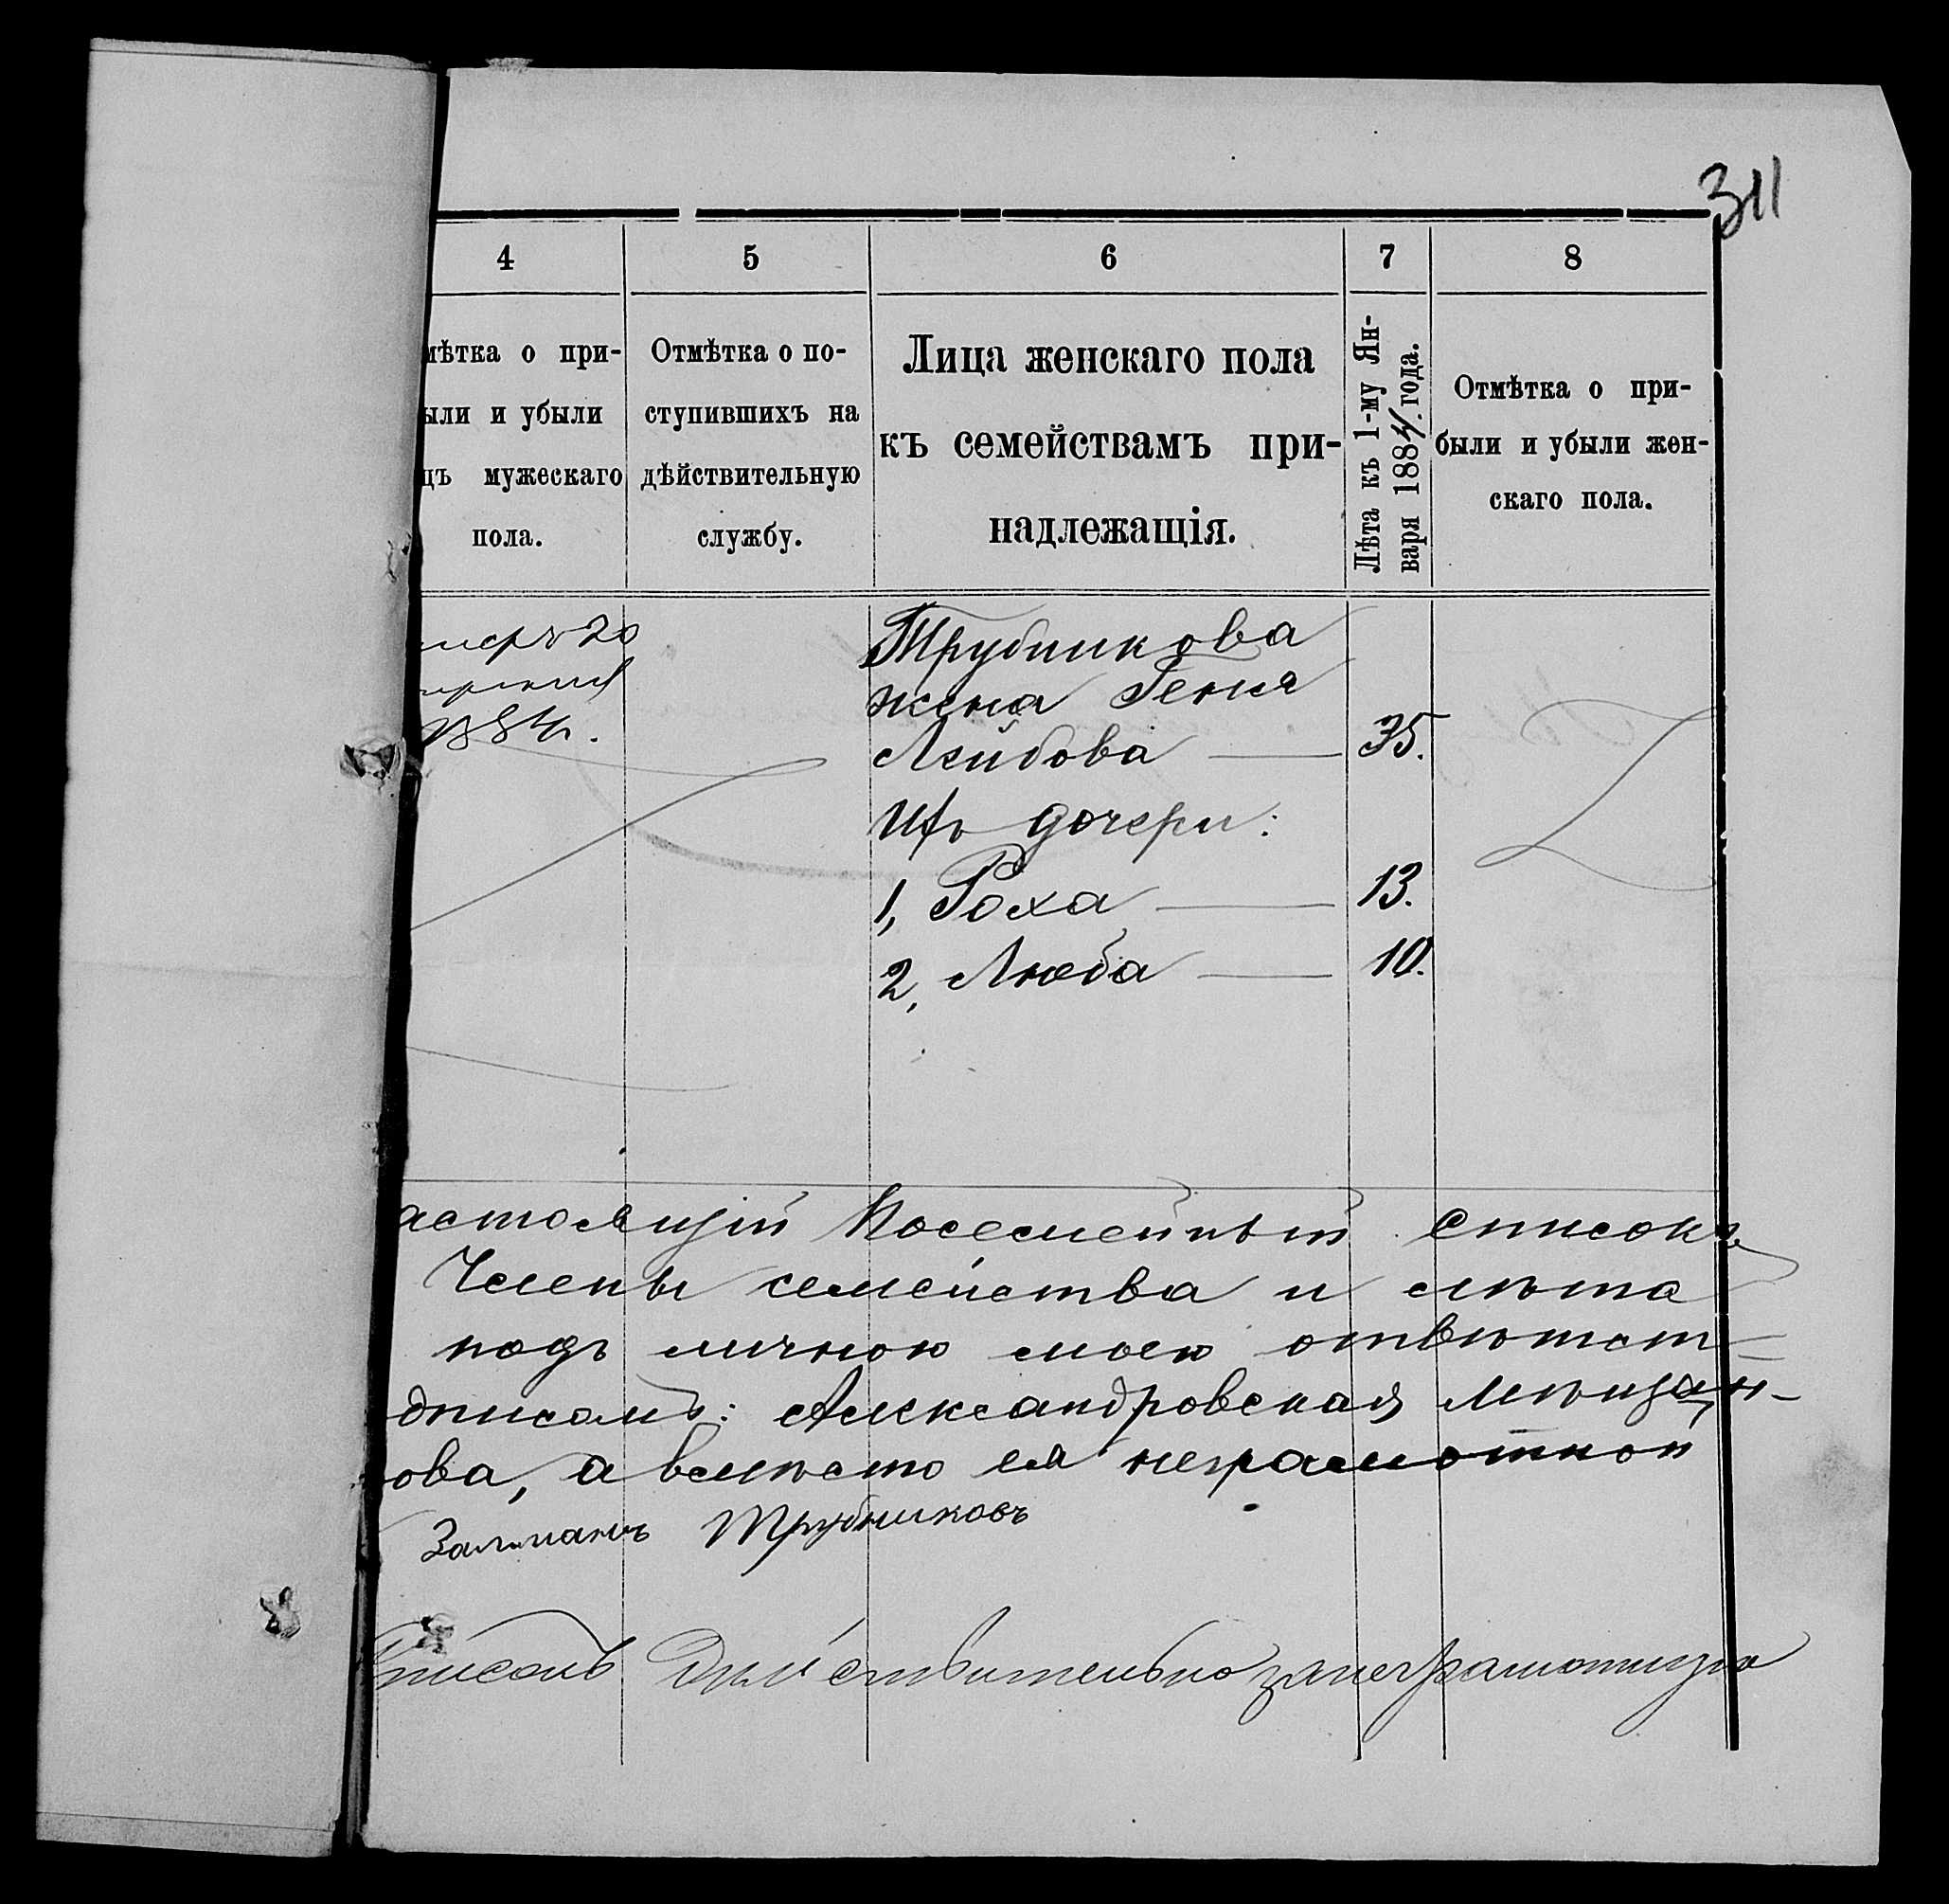 311
4 5 6 7 8
мѣтка о при-
ыли и убыли
цъ мужескаго
пола.
Отмѣтка о по-
ступившихъ на
дѣйствительную
службу.
Лица женскаго пола
къ семействамъ при-
надлежащія.
Лѣта къ 1-му Ян-
варя 1884 года.
Отмѣтка о при-
были и убыли жен-
скаго пола.
меръ 20
1884г.
Трубникова
жена Геня
Лейбова — 35.
Ихъ дочери:
1, Роха — 13.
2, Люба — 10.
астоящій Посемейный списокъ
Члены семейства и лѣта
подъ личною моею отвѣтст-
дписомъ: Александровская мѣщан-
ова, а вмѣсто ея неграмотной
Залманъ Трубниковъ
дѣйствительно за неграмотную